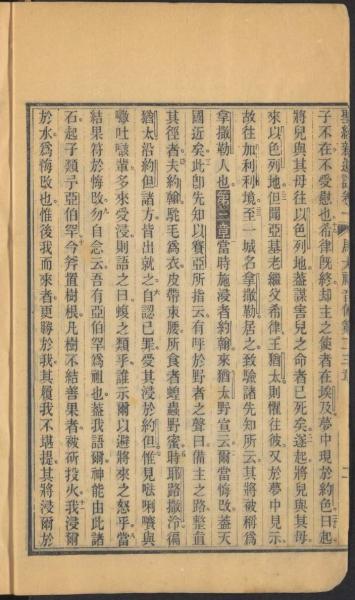 子不在不受慰也希律既終却主之使者在埃及夢中現於約色曰起
將兒與其母往以色列地蓋謀害兒之命者已死矣遂起將兒與其母
來以色列地但聞亞基老繼父希律王猶太則懼往彼又於夢中見示
故往加利利境至一城名拿撒勒居之致驗諸先知所云其將被稱爲
拿撒勒人也第三章當時施浸者約翰來猶太野宣云爾當悔改蓋天
國近矣此卽先知以賽亞所指云有呼於野者之聲曰備主之路整直
其徑者夫約翰駝毛爲衣皮帶束腰所食者蝗蟲野蜜時耶路撒冷徧
猶太沿約但諸方皆出就之自認已罪受其浸於約但惟見𠵽唎㘔與
吐 輩多來受浸則語之曰蝮之類乎誰示爾以避將來之怒乎當
結果符於悔改勿自念云吾有亞伯罕爲祖也蓋我語爾神能由此諸
石起子類予亞伯罕今斧置樹根凡樹不結善果者被斫投火我浸爾
於水爲悔改也惟後我而來者更勝於我其履我不堪提其將浸爾於